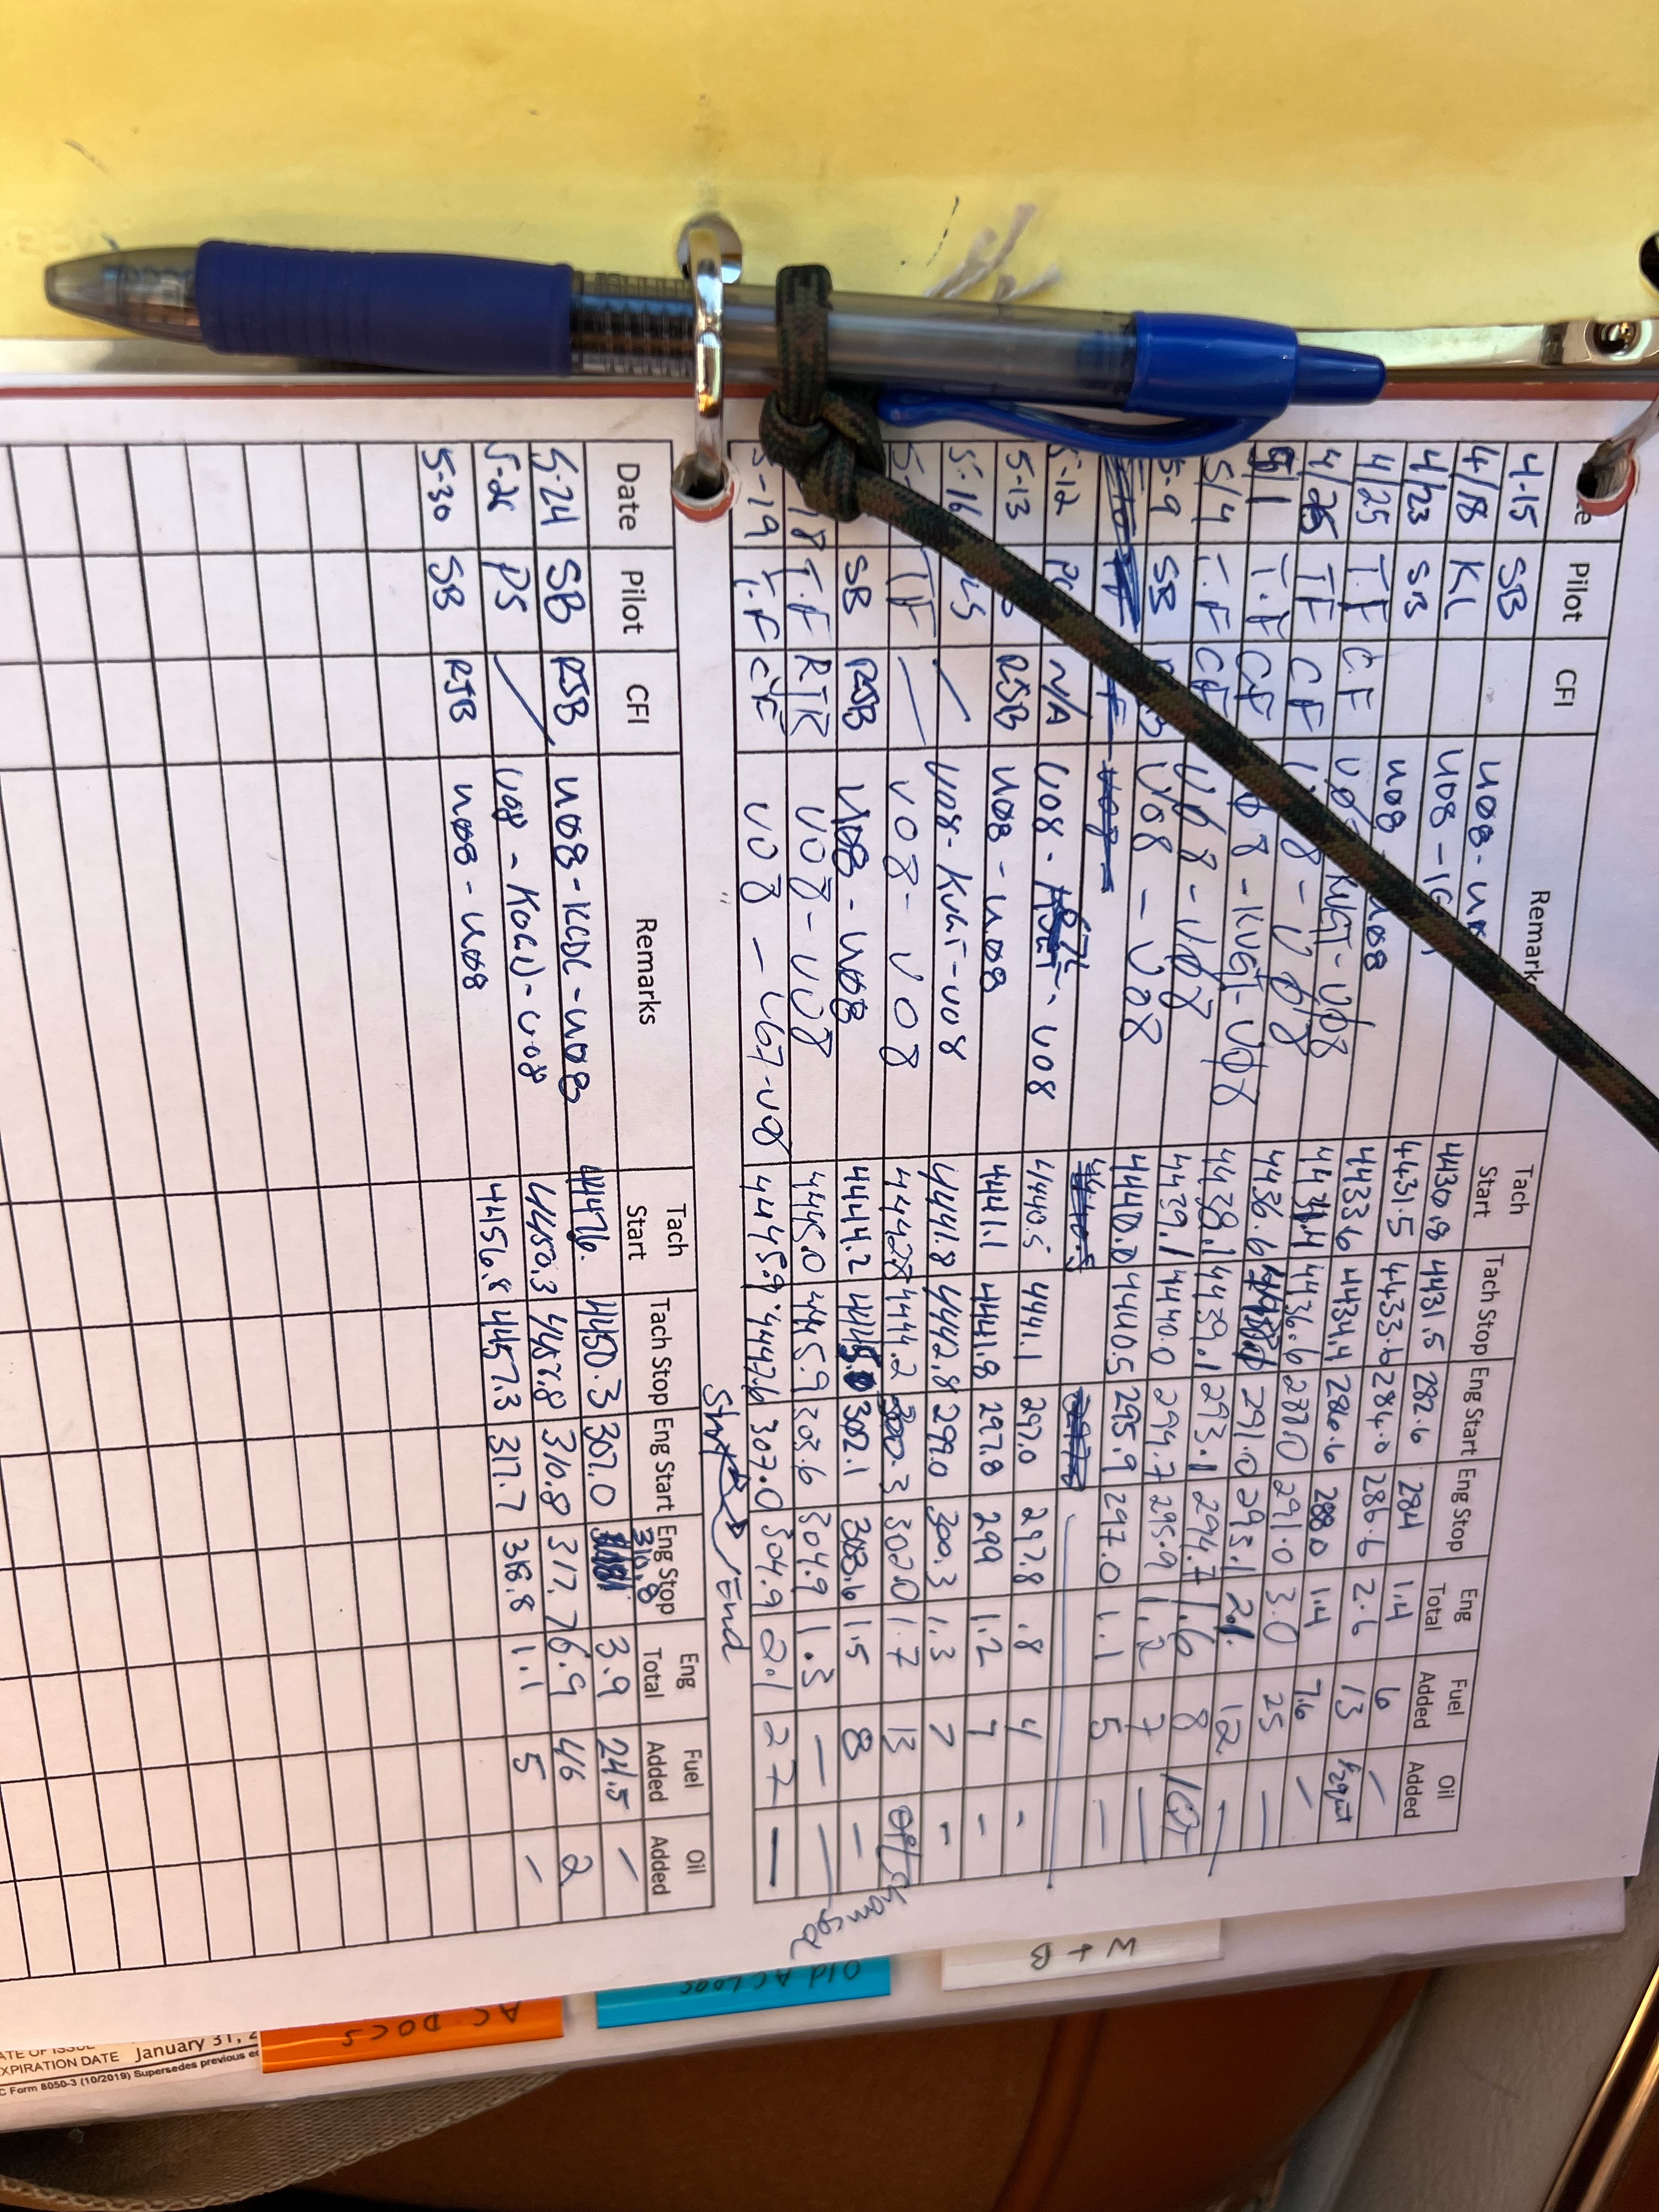 Pilot CFI Remark Tach Start Tach Stop Eng Start Eng Stop Eng Total Fuel Added Oil Added
4-15 SB U08-U 4430.8 4431.5 282.6 284 1.4 6 —
4/18 KL U08-1G 4431.5 4433.6 284.0 286.6 2.6 13 1/2 qut
4/23 SB U08 U08 4433.6 4434.4 286.6 288.0 1.4 7.6 —
4/25 T.F C.F KVGT-U08 4436.6 291.0 3.0 25 —
TF C.F 8-U08 4436.6 291.0 293.1 2.1 12 —
T.F C.F 8-KVGT-U08 4438.1 4439.1 293.1 294.7 1.6 8 1QT
5/4 T.F C.F U08-U08 4439.1 4440.0 294.7 295.9 1.2 7 —
5-9 SB U08-U08 4440.0 4440.5 295.9 297.0 1.1 5 —
5-12 N/A U08 - 67L - U08 4440.5 4441.1 297.0 297.8 .8 4 -
5-13 RSB U08-U08 4441.1 4441.8 297.8 299 1.2 7 -
5-16 / U08-KVGT-U08 4441.8 4442.8 299.0 300.3 1.3 7 -
TF — U08-U08 4442.8 4444.2 300.3 302.0 1.7 13 Oil Changed
SB RSB U08-U08 4444.2 4445.0 302.1 303.6 1.5 8 —
18 T.F RTR U08-U08 4445.0 4445.9 303.6 304.9 1.3 — —
5-19 T.F C.F U08 - L67-U08 4445.9 4447.6 307.0 304.9 2.1 27 —
Start End
Date Pilot CFI Remarks Tach Start Tach Stop Eng Start Eng Stop Eng Total Fuel Added Oil Added
5-24 SB RSB U08-KCDC-U08 4447.6 4450.3 307.0 310.8 3.9 24.5 —
5-26 PS / U08 - U08 4450.3 4456.8 310.8 317.7 6.9 46 2
5-30 SB RJB U08-U08 4456.8 4457.3 317.7 318.8 1.1 5 —
W+B
Old AC Logs
AC DOCS
EXPIRATION DATE January 31, 2
C Form 8050-3 (10/2019) Supersedes previous